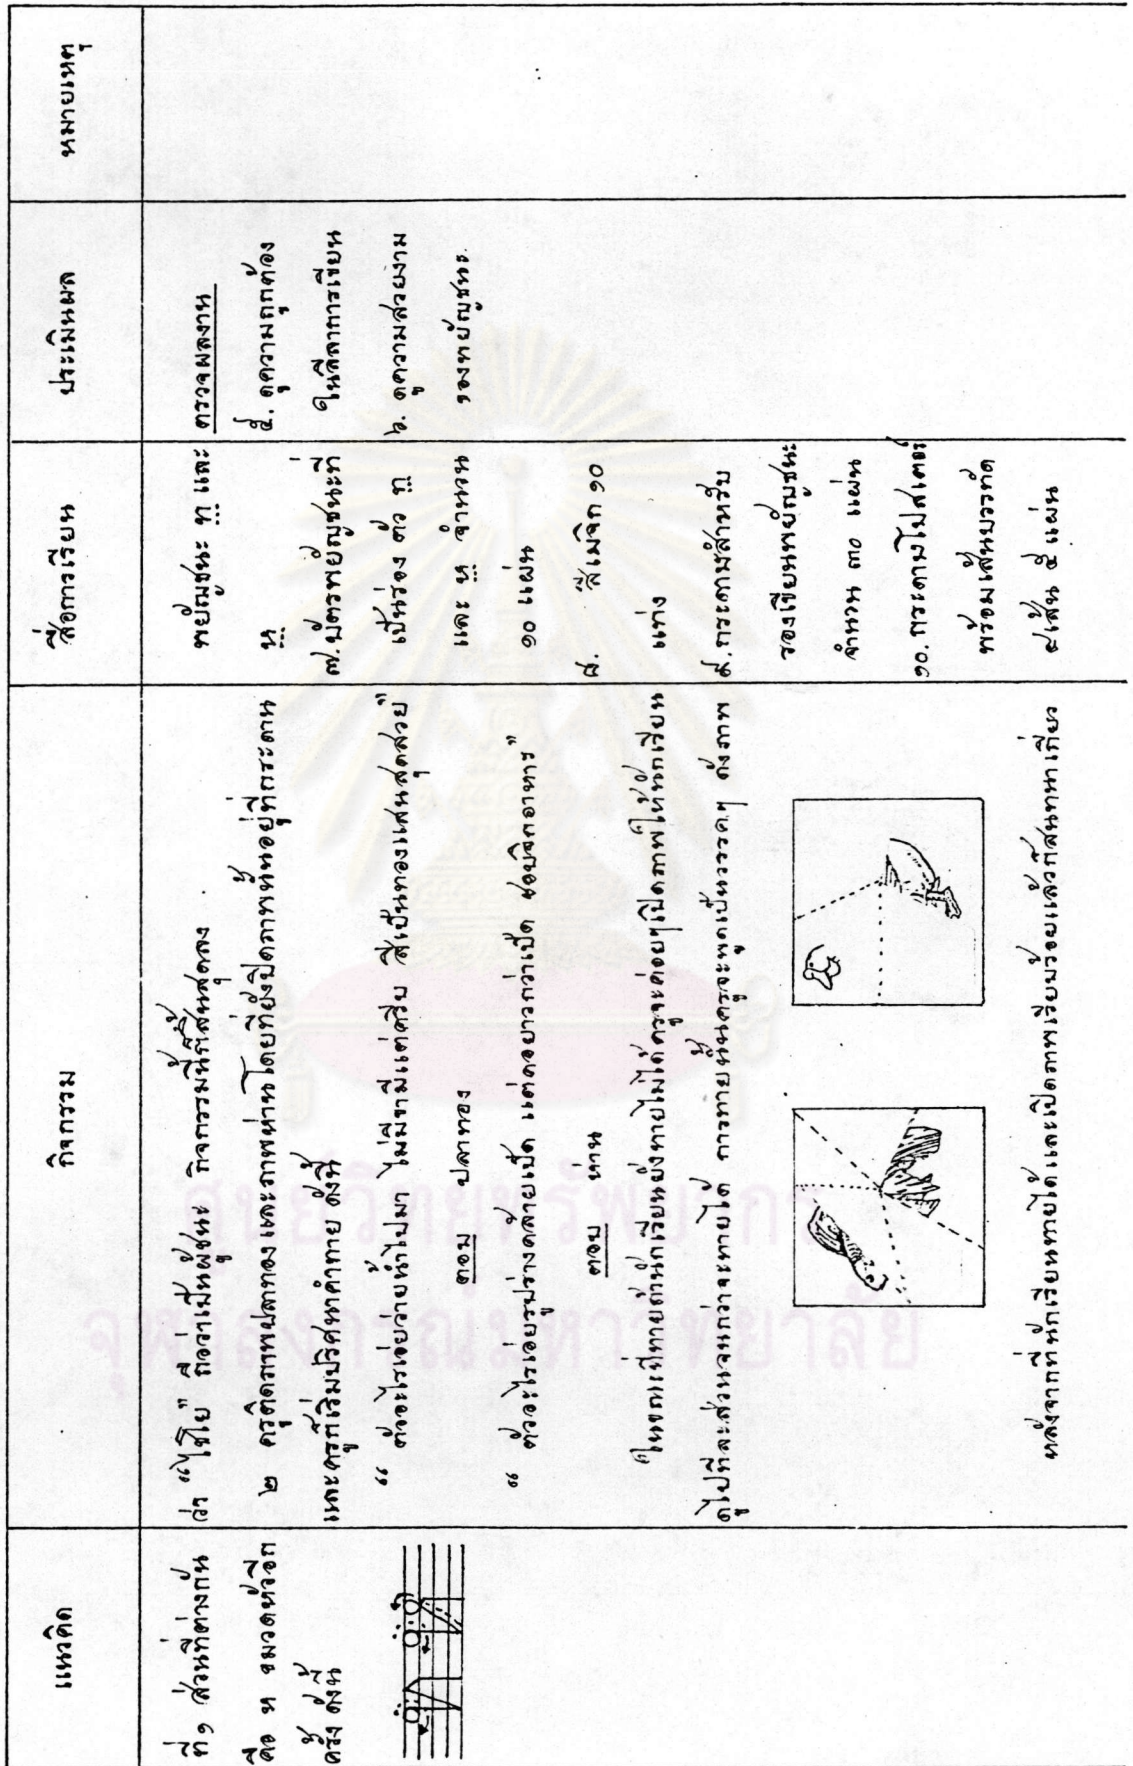 แนวคิด
กิจกรรม
สื่อการเรียน
ประเมินผล
หมายเหตุ
ที่๑ ส่วนที่ต่างกัน
คือ ห ขมวดหัวอีก
ครั้ง ดังนี้
ว่า "ไชโย" ถือว่าเป็นผู้ชนะ กิจกรรมนี้ก็สิ้นสุดลง
๒ ครูติดภาพปลาทองและภาพห่านโดยที่ยังปิดภาพนั้นอยู่ที่กระดาน
และครูก็เริ่มปริศนาคำทาย ดังนี้
" ตัวอะไรเอ่ยว่ายน้ำไปมา ไม่มีขามีแต่ครีบ สีเป็นทองแสนสุดสวย"
ตอบ ปลาทอง
" ตัวอะไรเอ่ยรูปร่างคล้ายเป็ด แต่คอยาวกว่าเป็ด ชอบจิกอาหาร"
ตอบ ห่าน
ในขณะที่ทายถ้านักเรียนยังทายไม่ได้ครูจะค่อยๆเปิดภาพให้นักเรียน
ดูไปทีละส่วนจนกว่าจะทายได้ การทายนั้นครูจะพูดเป็นวรรคๆ ดังภาพ
หลังจากที่นักเรียนทายได้และเปิดภาพเรียบร้อยแล้วก็สนทนาเกี่ยว
พยัญชนะ ท และ
ห
๗.บัตรพยัญชนะที่
เป็นร่อง ตัว ท
และ ห จำนวน
๑๐ แผ่น
๘. สีเมจิก ๑๐
แท่ง
๙.กระดาษสำหรับ
รองเขียนพยัญชนะ
จำนวน ๓๐ แผ่น
๑๐.กระดาษโปสเตอร์
พร้อมเส้นบรรทัด
๙ เส้น ๕ แผ่น
ตรวจผลงาน
๕. ดูความถูกต้อง
ในลีลาการเขียน
๖. ดูความสวยงาม
ของพยัญชนะ
ศูนย์วิทยทรัพยากร
จุฬาลงกรณ์มหาวิทยาลัย